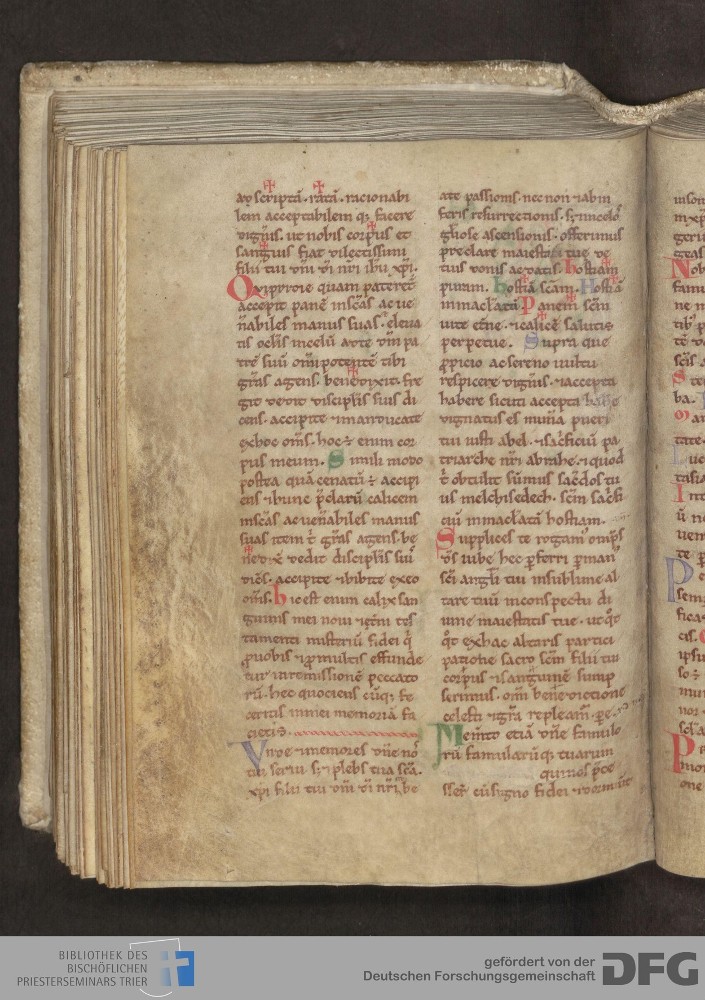 aꝫ scriptā. ratā. racionabi
lem acceptabilem qꝫ facere
digñis. ut nobis corpus et
sanguis fiat dilectissimi
filii tui dñi di nr̄i ihu xp̄i.
Qui pridie quam pateret̃
accepit panē in sc̄as ac ue
nabiles manus suas. eleua
tis oclīs in celū ad te dm̄ pa
trē suū om̄ipotentē tibi
gr̄as agens. benedixit. fre
git dedit discipl̄is suis di
cens. accipite ⁊ manducate
ex hoc om̄s. hoc ÷ enim cor
pus meum. Simili modo
postea quā cenatū ÷ accipi
ens ⁊ hunc p̄clarū calicem
in sc̄as ac uen̄abiles manus
suas item t̄ gr̄as agens. be
nedix̄ dedit discipl̄is sui
dicēs. accipite ⁊ bibite ex eo
om̄s. hic est enim calix san
guinis mei noui ⁊ et̄ni tes
tamenti misteriū fidei q̄
p uobis ⁊ p multis effunde
tur in remissionē peccato
rū. hec quociens cūqꝫ fe
ceritis in mei memoriā fa
cietis.
Vnde ⁊ memores dn̄e nos
tui serui sꝫ ⁊ plebs tua sc̄a.
xp̄i filii tui dn̄i di nr̄i be
ate passionis. nec non ⁊ ab in
feris resurrectionis. sꝫ ⁊ in celos
gl̄iose ascensionis. offerimus
preclare maiestati tue de
tuis donis ac datis. hostiam
puram. hostiā scām. Hostiā
inmaclātā Panem scm̄
uite et̄ne. ⁊ calicē salutis
perpetue. Supra que
propicio ac sereno uultu
respicere digñis. ⁊ accepta
habere sicuti accepta habe
dignatus es mun̄a pueri
tui iusti abel. ⁊ sac̄ficiū pa
triarche nr̄i abrahe. ⁊ quod
t̄ obtulit sūmus sac̄dos tu
us melchisedech. scm̄ sac̄fi
ciū inmaclātā hostiam.
Supplices te rogam̄ om̄ps
ds iube hec p̄ferri p man
sc̄i angl̄i tui in sublime al
tare tuū in conspectu di
uine maiestatis tue. ut qͦt
qͦt ex hac altaris partici
patione sacro scm̄ filii tui
corpus ⁊ sanguinē sump
serimus. om̄i benedictione
celesti ⁊ gr̄a repleam̄. pe
Mem̄to etiā dn̄e famulo
rū famularū qꝫ tuarum
qui nos p̄ce
sser̄ cū signo fidei ⁊ dormīt
BIBLIOTHEK DES
BISCHÖFLICHEN
PRIESTERSEMINARS TRIER
gefördert von der
Deutschen Forschungsgemeinschaft
DFG